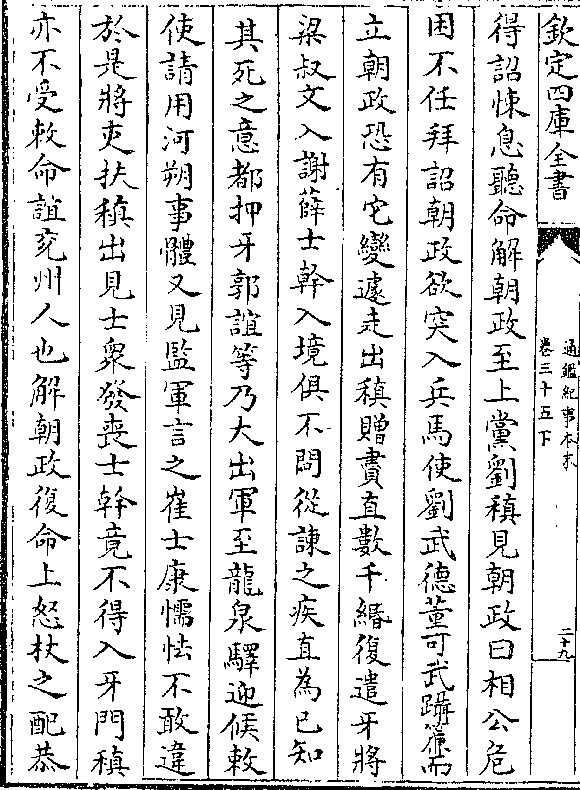 欽定四庫全書
通鑑紀事本末
卷三十五下
二十九
得詔悚息聽命解朝政至上黨劉稹見朝政曰相公危
困不任拜詔朝政欲突入兵馬使劉武德董可武躡簾而
立朝政恐有它變遽走出稹贈賮直數千緡復遣牙將
梁叔文入謝薛士幹入境俱不問從諫之疾直為已知
其死之意都押牙郭誼等乃大出軍至龍泉驛迎候敕
使請用河朔事體又見監軍言之崔士康懦怯不敢違
於是將吏扶稹出見士衆發喪士幹竟不得入牙門稹
亦不受敕命誼兖州人也解朝政復命上怒杖之配恭